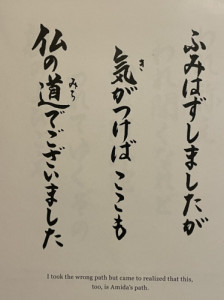 ふみはずしましたが
気がつけばここも
仏の道でございました
き
みち
I took the wrong path but came to realized that this,
too, is Amida's path.